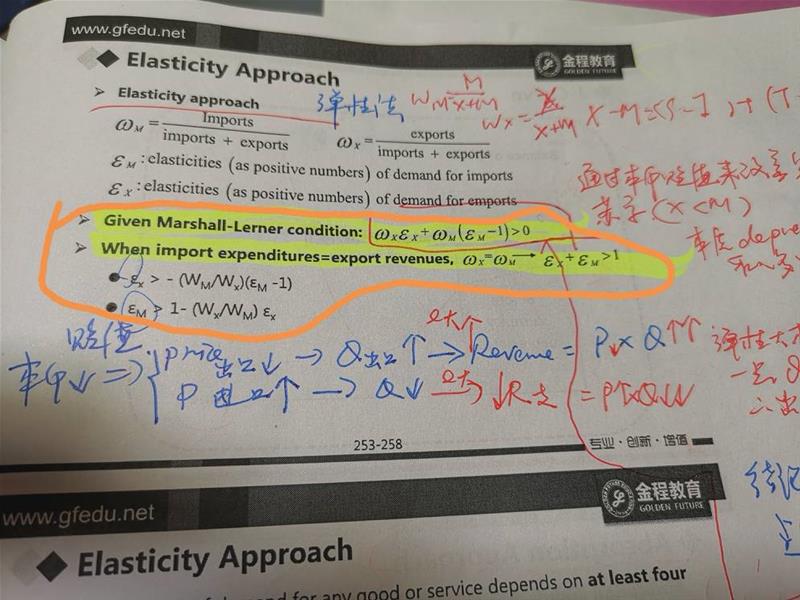 www.gfedu.net
金程教育
GOLDEN FUTURE
Elasticity Approach
Elasticity approach
弹性法
W_M = M / X+M
W_X = X / X+M
X-M=(S-I)+(T-
ω_M = Imports / imports + exports
ω_X = exports / imports + exports
ε_M : elasticities (as positive numbers) of demand for imports
ε_X : elasticities (as positive numbers) of demand for emports
通过本币贬值来改善
赤字 (X<M)
本
Given Marshall-Lerner condition: ω_X ε_X + ω_M (ε_M −1) > 0
When import expenditures=export revenues, ω_X = ω_M → ε_X + ε_M > 1
ε_x > - (W_M/W_x)(ε_M -1)
ε_M > 1- (W_x/W_M) ε_x
贬值
本币↓ ⇒
Price 出口↓ → Q出口↑ → Revenue = P↓ x Q↑↑
P 进口↑ → Q↓ → ↓R支 = P↑xQ↓↓
弹性大
一点
253-258
专业·创新·增值
www.gfedu.net
金程教育
GOLDEN FUTURE
Elasticity Approach
demand for any good or service depends on at least four